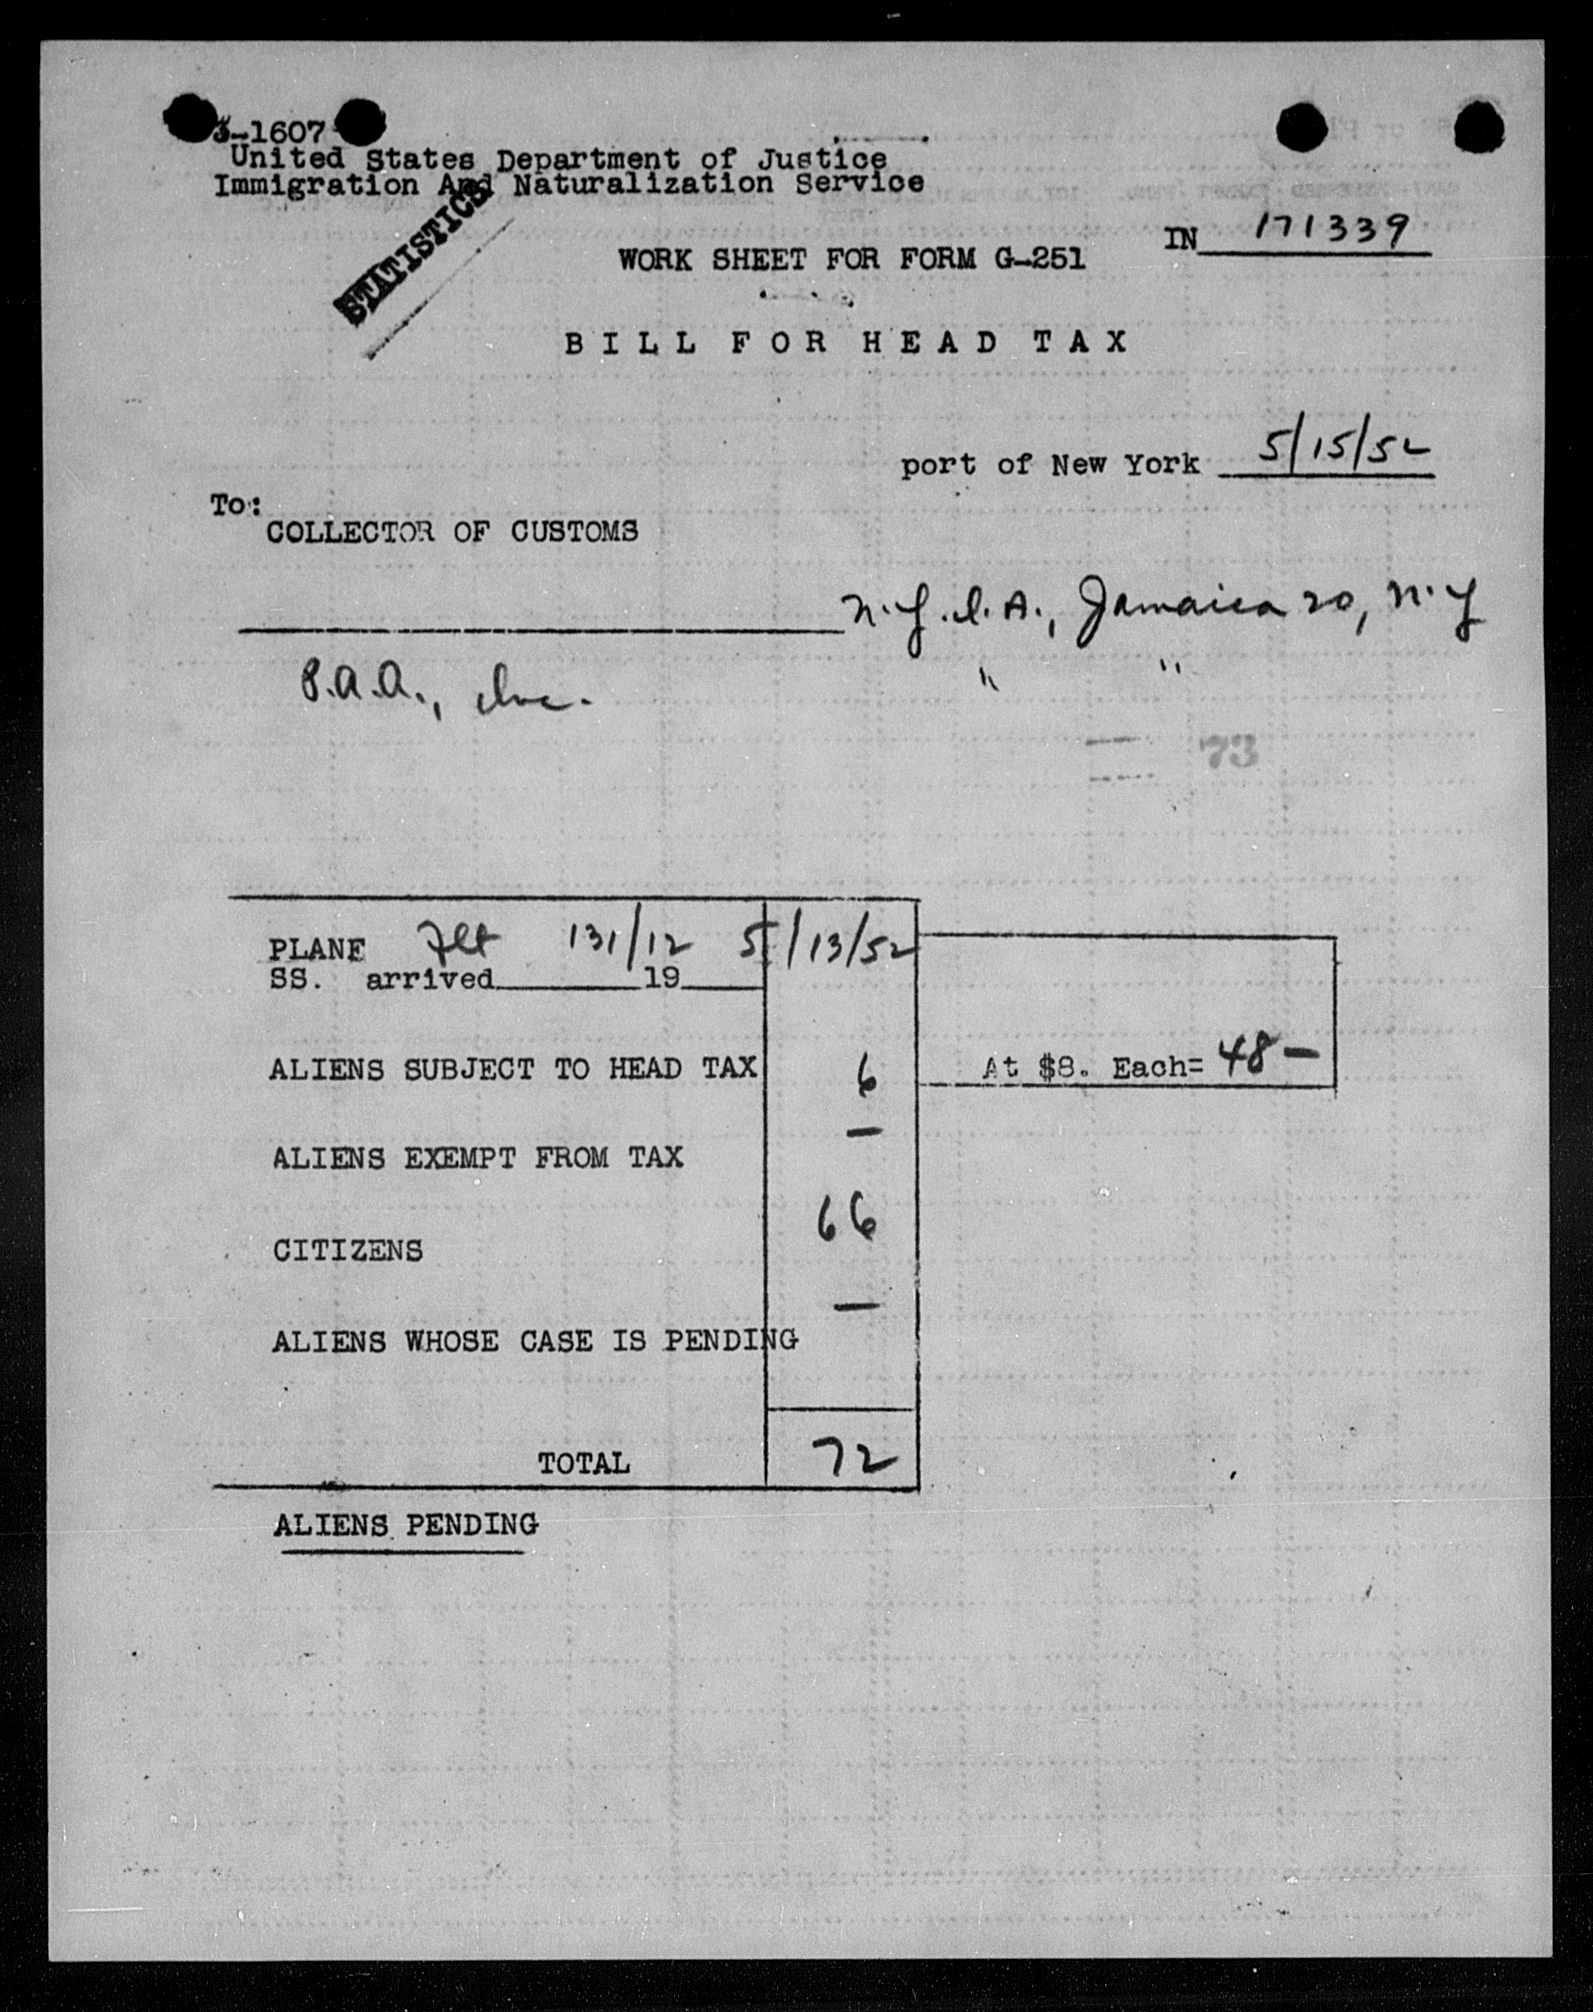 3-1607
United States Department of Justice
Immigration And Naturalization Service
STATISTICS
IN 171339
WORK SHEET FOR FORM G-251
BILL FOR HEAD TAX
port of New York 5/15/52
To:
COLLECTOR OF CUSTOMS
N.Y.I.A., Jamaica 20, N.Y
P.A.A., Inc. " "
73
PLANE Flt 131/12 5/13/52
SS. arrived 19
ALIENS SUBJECT TO HEAD TAX 6 At $8. Each= 48 —
ALIENS EXEMPT FROM TAX —
CITIZENS 66
ALIENS WHOSE CASE IS PENDING —
TOTAL 72
ALIENS PENDING